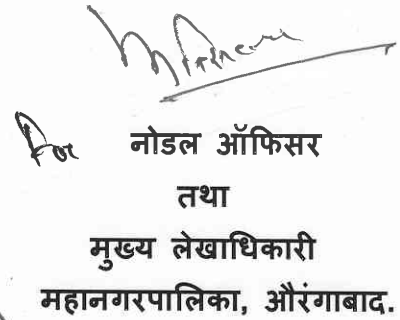 For नोडल ऑफिसर
तथा
मुख्य लेखाधिकारी
महानगरपालिका, औरंगाबाद.